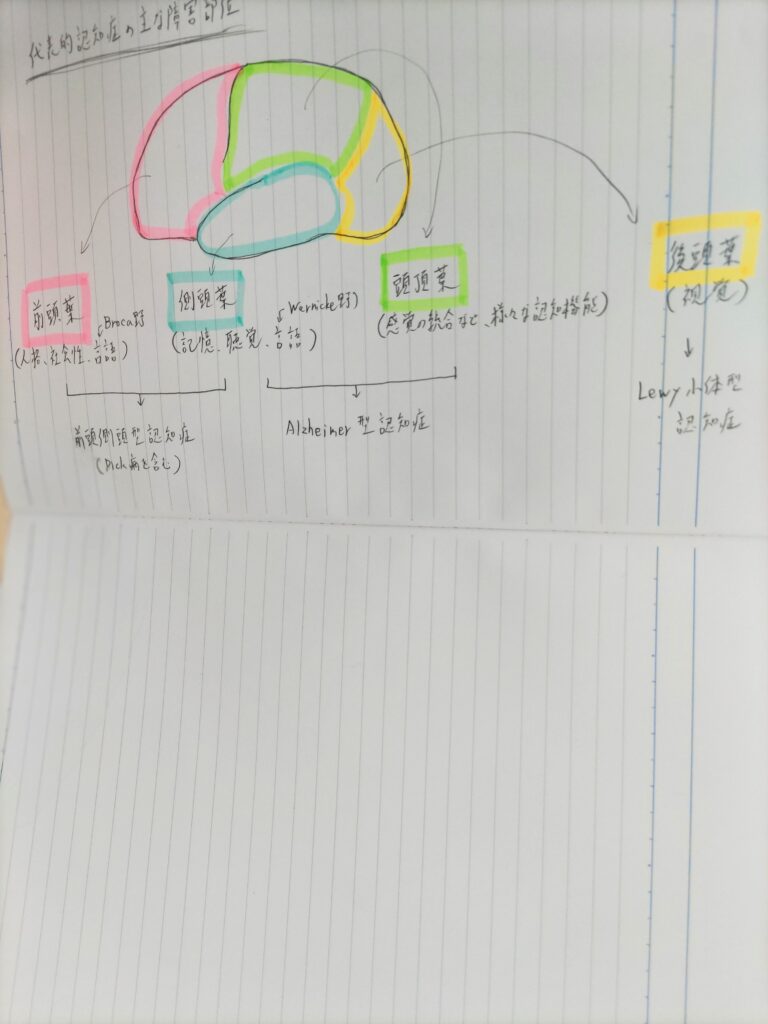 代表的認知症の主な障害部位
前頭葉
Broca野
(人格、社会性、言語)
側頭葉
Wernicke野
(記憶、聴覚、言語)
頭頂葉
(感覚の統合など、様々な認知機能)
後頭葉
(視覚)
前頭側頭型認知症
(Pick病を含む)
Alzheimer型認知症
Lewy小体型
認知症